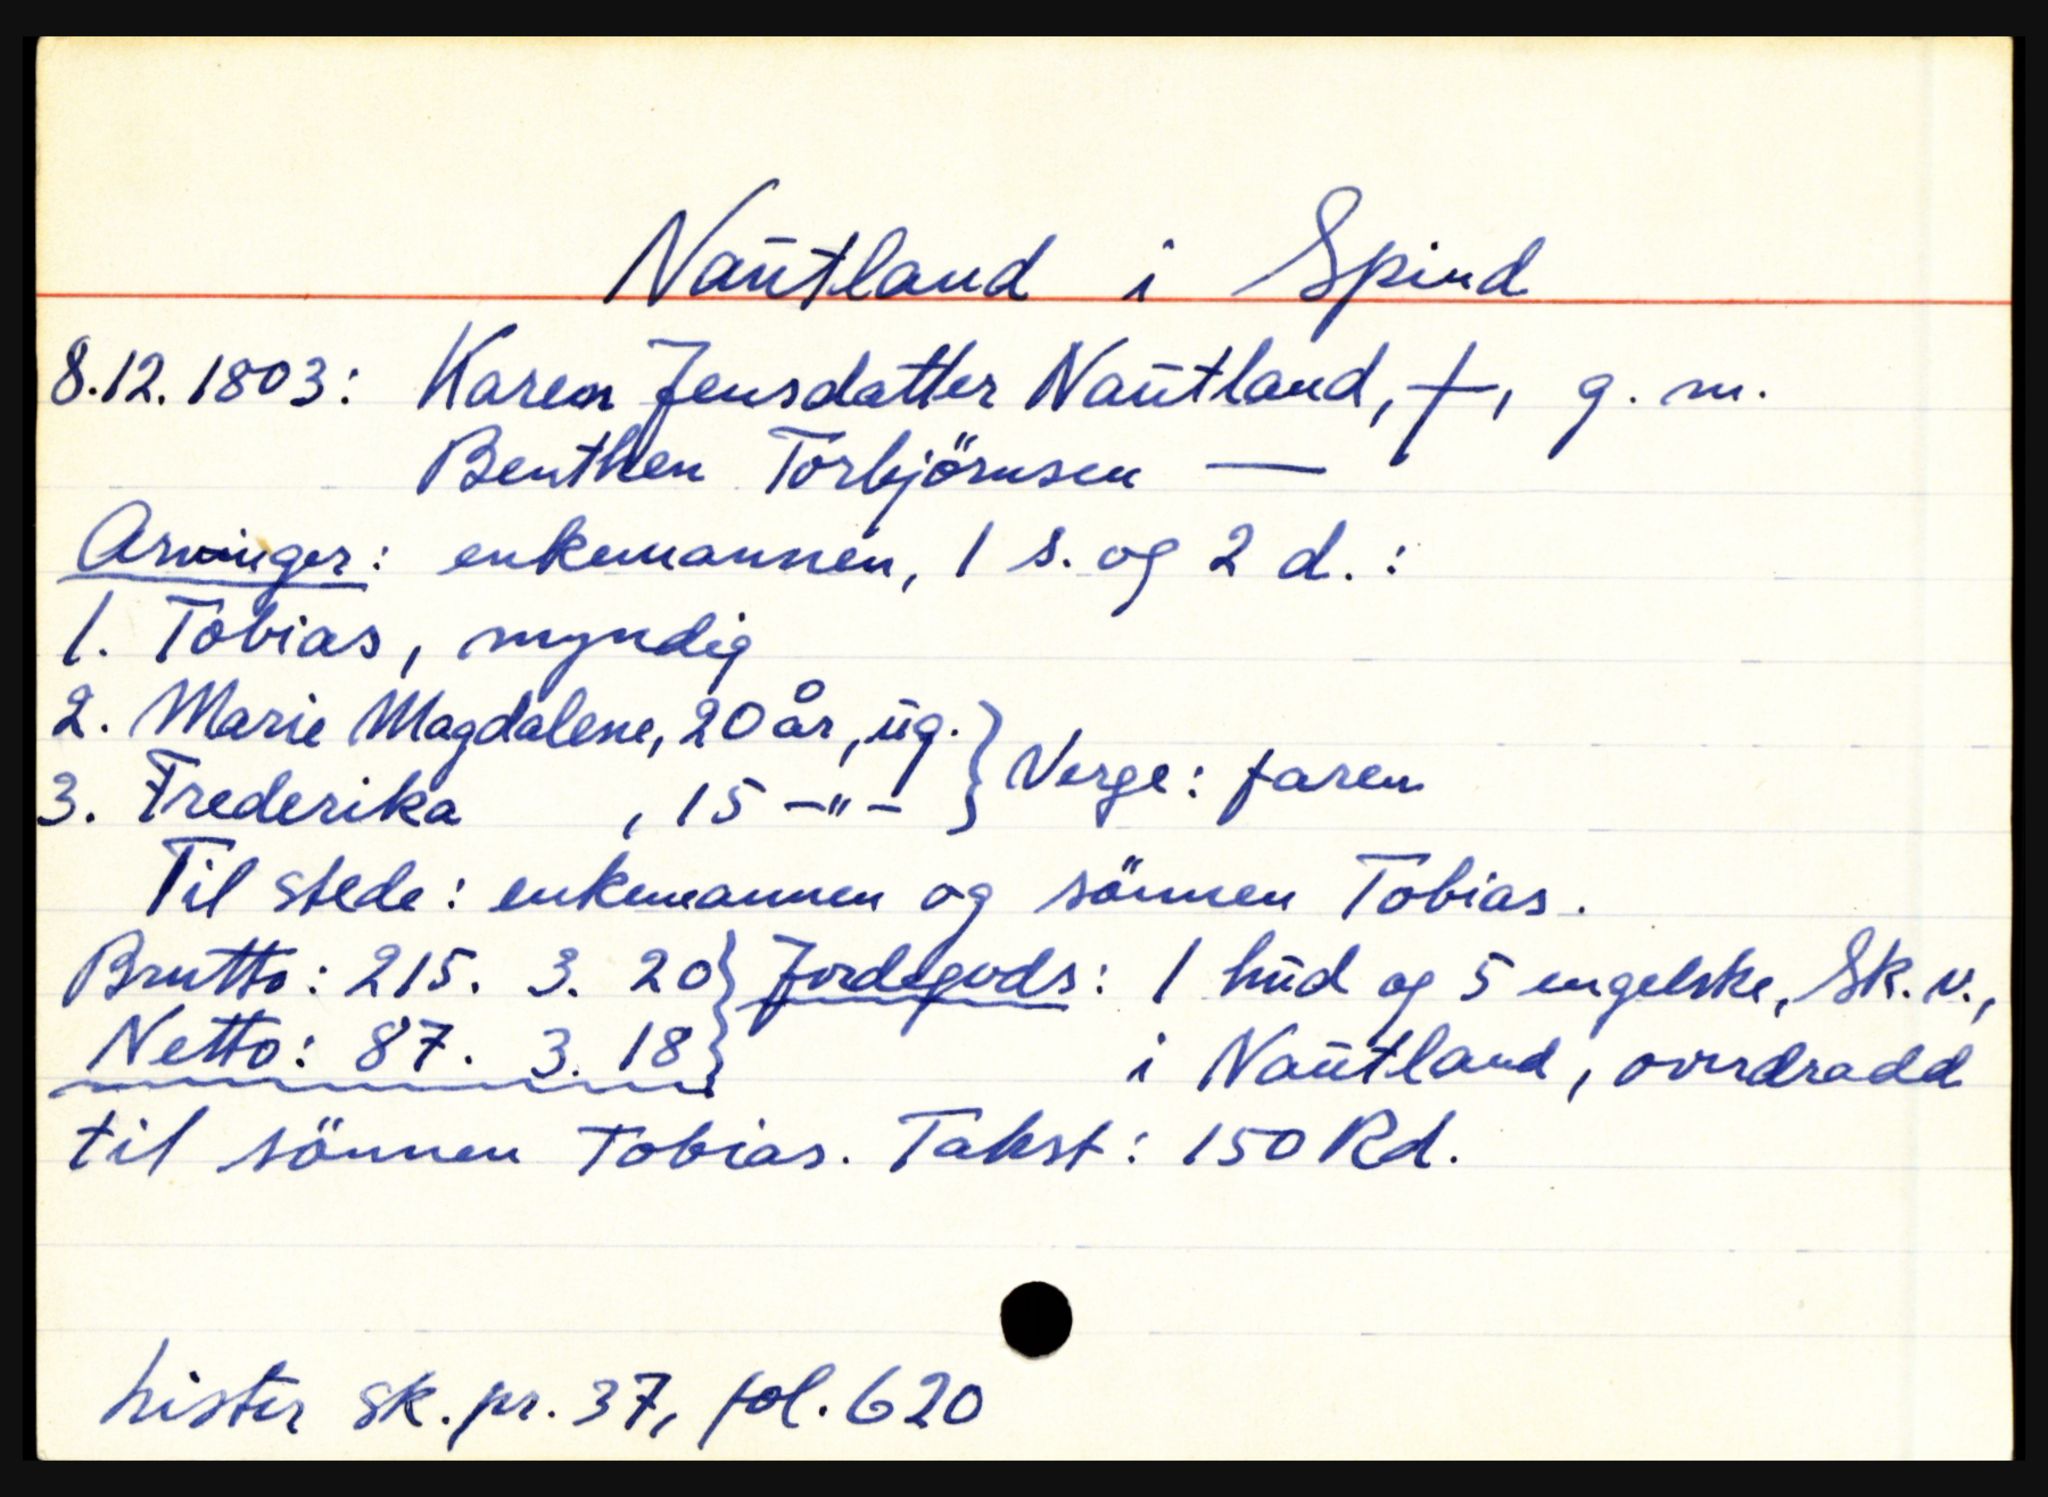 Naūtland i Spind
8.12.1803: Karen Jensdatter Naūtland, †, g. m.
Benthen Torbjörnsen —
Arvinger: enkemannen, 1 s. og 2 d. :
1. Tobias, myndig
2. Marie Magdalene, 20 år, ūg. } Verge: faren
3. Frederika , 15 —"— }
Til stede: enkemannen og sönnen Tobias.
Brutto: 215. 3. 20 } Jordegods: 1 hūd og 5 engelske, Sk. v.,
Netto: 87. 3. 18 } i Naūtland, overdradd
til sönnen Tobias. Takst: 150 Rd.
Lister sk. pr. 37, fol. 620